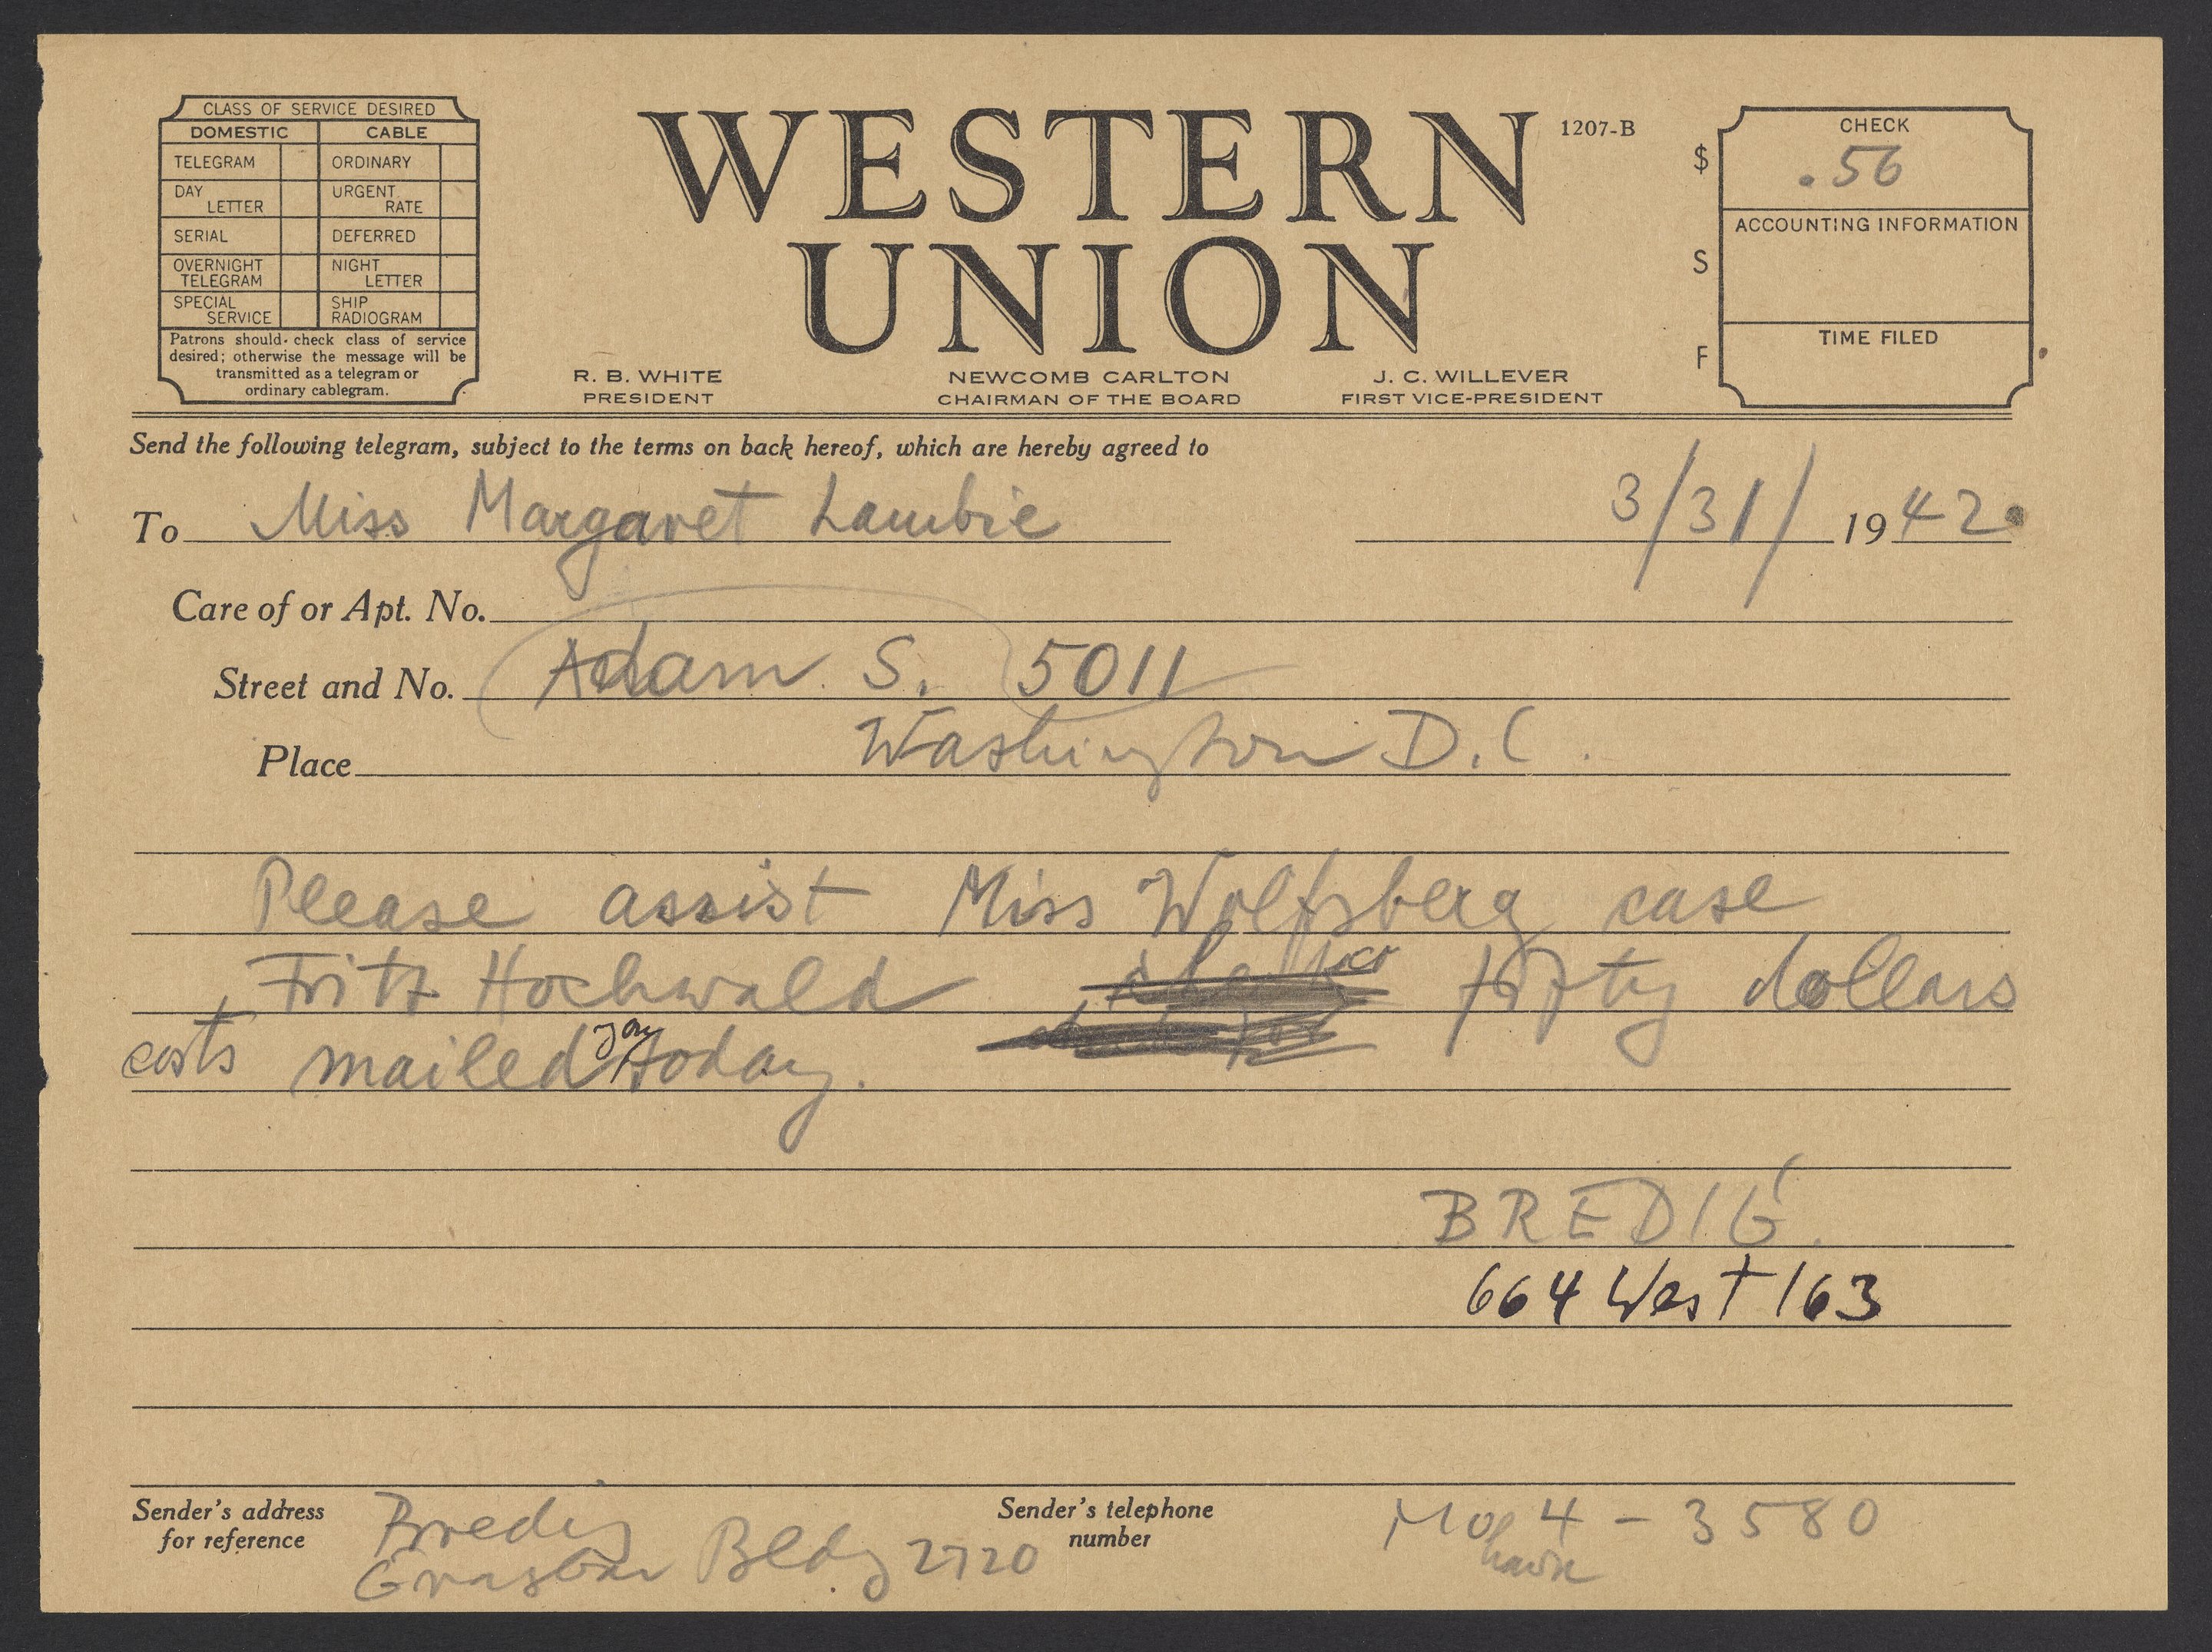 CLASS OF SERVICE DESIRED
DOMESTIC CABLE
TELEGRAM ORDINARY
DAY LETTER URGENT RATE
SERIAL DEFERRED
OVERNIGHT TELEGRAM NIGHT LETTER
SPECIAL SERVICE SHIP RADIOGRAM
Patrons should check class of service
desired; otherwise the message will be
transmitted as a telegram or
ordinary cablegram.
WESTERN
UNION
1207-B
R. B. WHITE
PRESIDENT
NEWCOMB CARLTON
CHAIRMAN OF THE BOARD
J. C. WILLEVER
FIRST VICE-PRESIDENT
$
S
F
CHECK
.56
ACCOUNTING INFORMATION
TIME FILED
Send the following telegram, subject to the terms on back hereof, which are hereby agreed to
To Miss Margaret Lambie 3/31/ 1942
Care of or Apt. No.
Street and No. Adam S. 5011
Place Washington D.C.
Please assist Miss Wolfsberg case
Fritz Hochwald fifty dollars
costs mailed you today.
BREDIG.
664 West 163
Sender's address
for reference
Bredig
Graybar Bldg 2720
Sender's telephone
number
Moh 4-3580
hawk